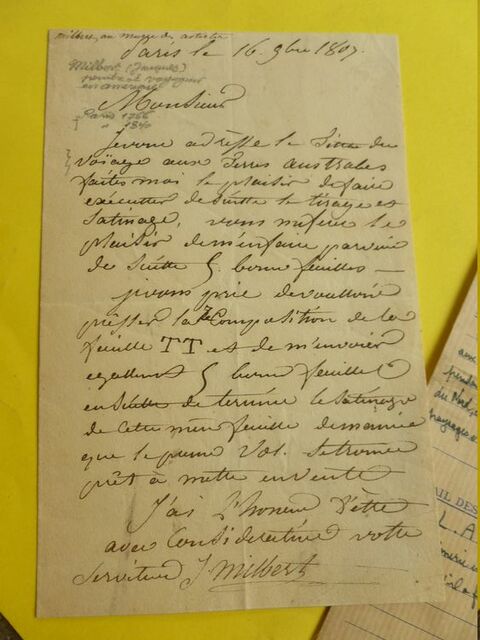 milbert, au musée des artistes
Paris le 16. 9bre 1807.
Milbert (Jacques)
peintre et voyageur
en amérique
Monsieur
Paris 1766
" 1840
je vous adresse le titre du
voyage aux Terres australes
faites moi le plaisir de faire
exécuter de suitte le tirage et
satinage, vous me ferez le
plaisir de m'en faire parvenir
de suitte 5 bonne feuilles —
je vous prie de vouloir
presser la Composition de la
feuille TT et de m'envoier
egallement 5 bonne feuilles
ensuitte de terminer le satinage
de cette même feuille de manière
que le premier Vol. se trouve
prêt à mettre en vente
J'ai l'honneur d'être
avec Considération votre
serviteur J. Milbert
aux
pendan
du Nord,
paysages
AIL DES
L. A